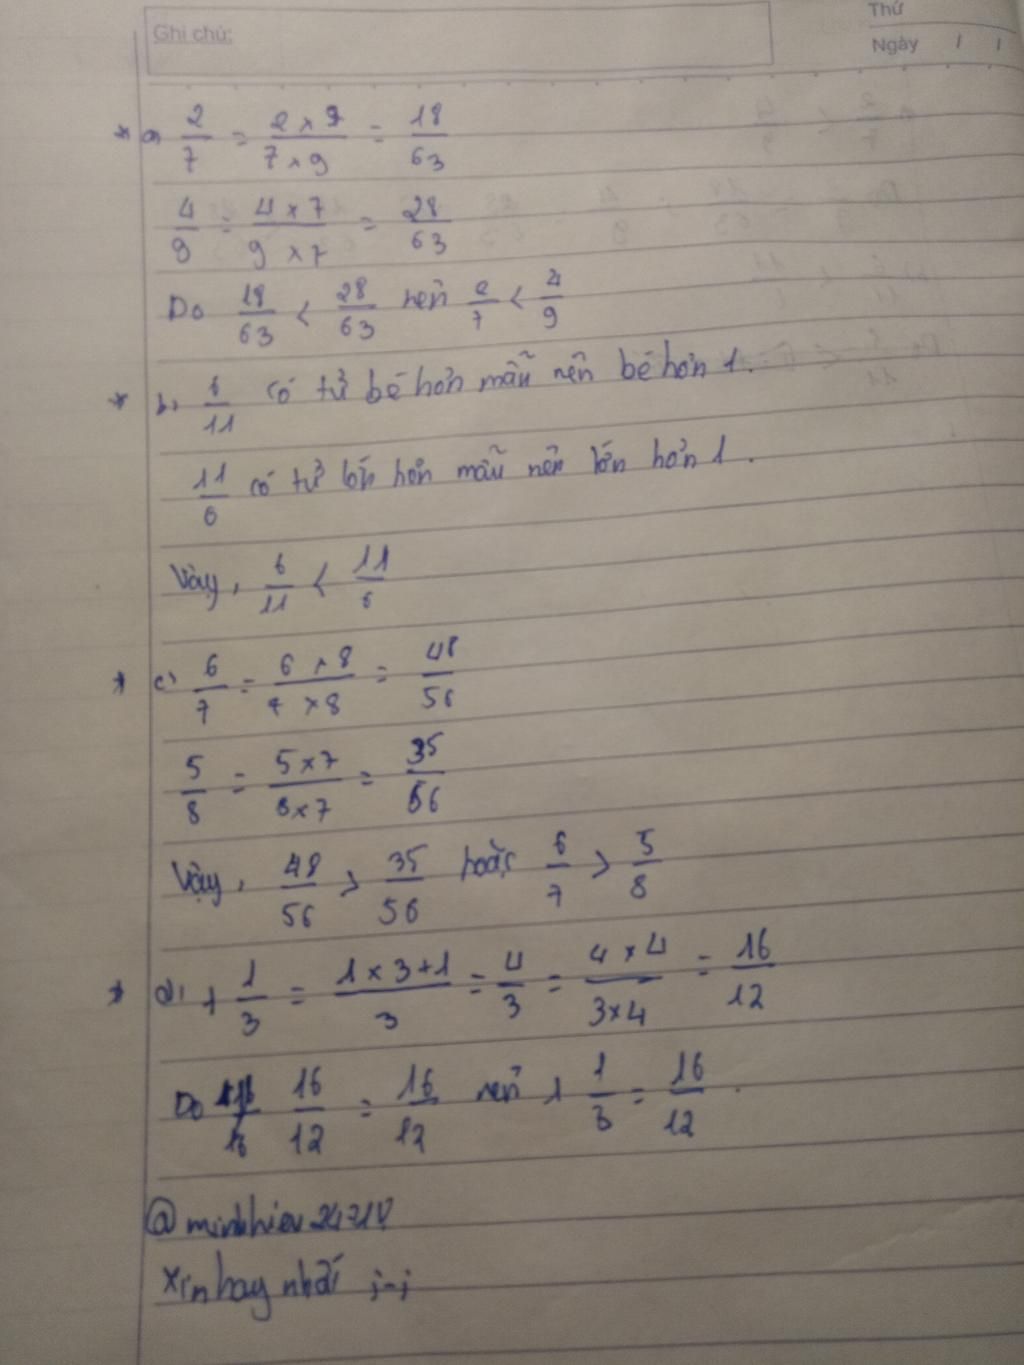 Ghi chú:
Thứ
Ngày / /
* a, 2/7 = 2 x 9/7 x 9 = 18/63
4/9 = 4 x 7/9 x 7 = 28/63
Do 18/63 < 28/63 nên 2/7 < 4/9
* b, 6/11 có tử bé hơn mẫu nên bé hơn 1.
11/6 có tử lớn hơn mẫu nên lớn hơn 1.
Vậy, 6/11 < 11/6
* c, 6/7 = 6 x 8/7 x 8 = 48/56
5/8 = 5 x 7/8 x 7 = 35/56
Vậy, 48/56 > 35/56 hoặc 6/7 > 5/8
* d, 1 1/3 = 1 x 3 + 1/3 = 4/3 = 4 x 4/3 x 4 = 16/12
Do 16/12 = 16/12 nên 1 1/3 = 16/12.
xin hay nhất ;-;